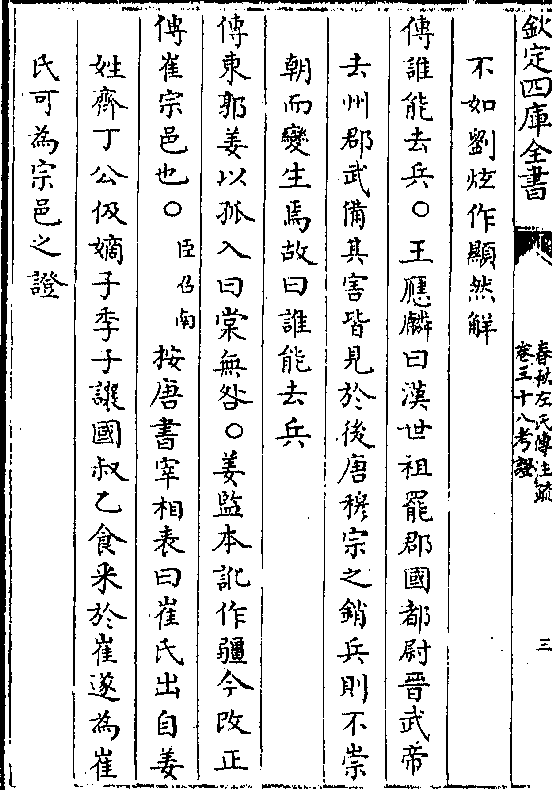 欽定四庫全書
春秋左氏傳注疏
卷三十八考證
三
不如劉炫作顯然解
傳誰能去兵○王應麟曰漢世祖罷郡國都尉晉武帝
去州郡武備其害皆見於後唐穆宗之銷兵則不崇
朝而變生焉故曰誰能去兵
傳東郭姜以孤入曰棠無咎○姜監本訛作疆今改正
傳崔宗邑也○臣召南按唐書宰相表曰崔氏出自姜
姓齊丁公伋嫡子季子讓國叔乙食采於崔遂為崔
氏可為宗邑之證